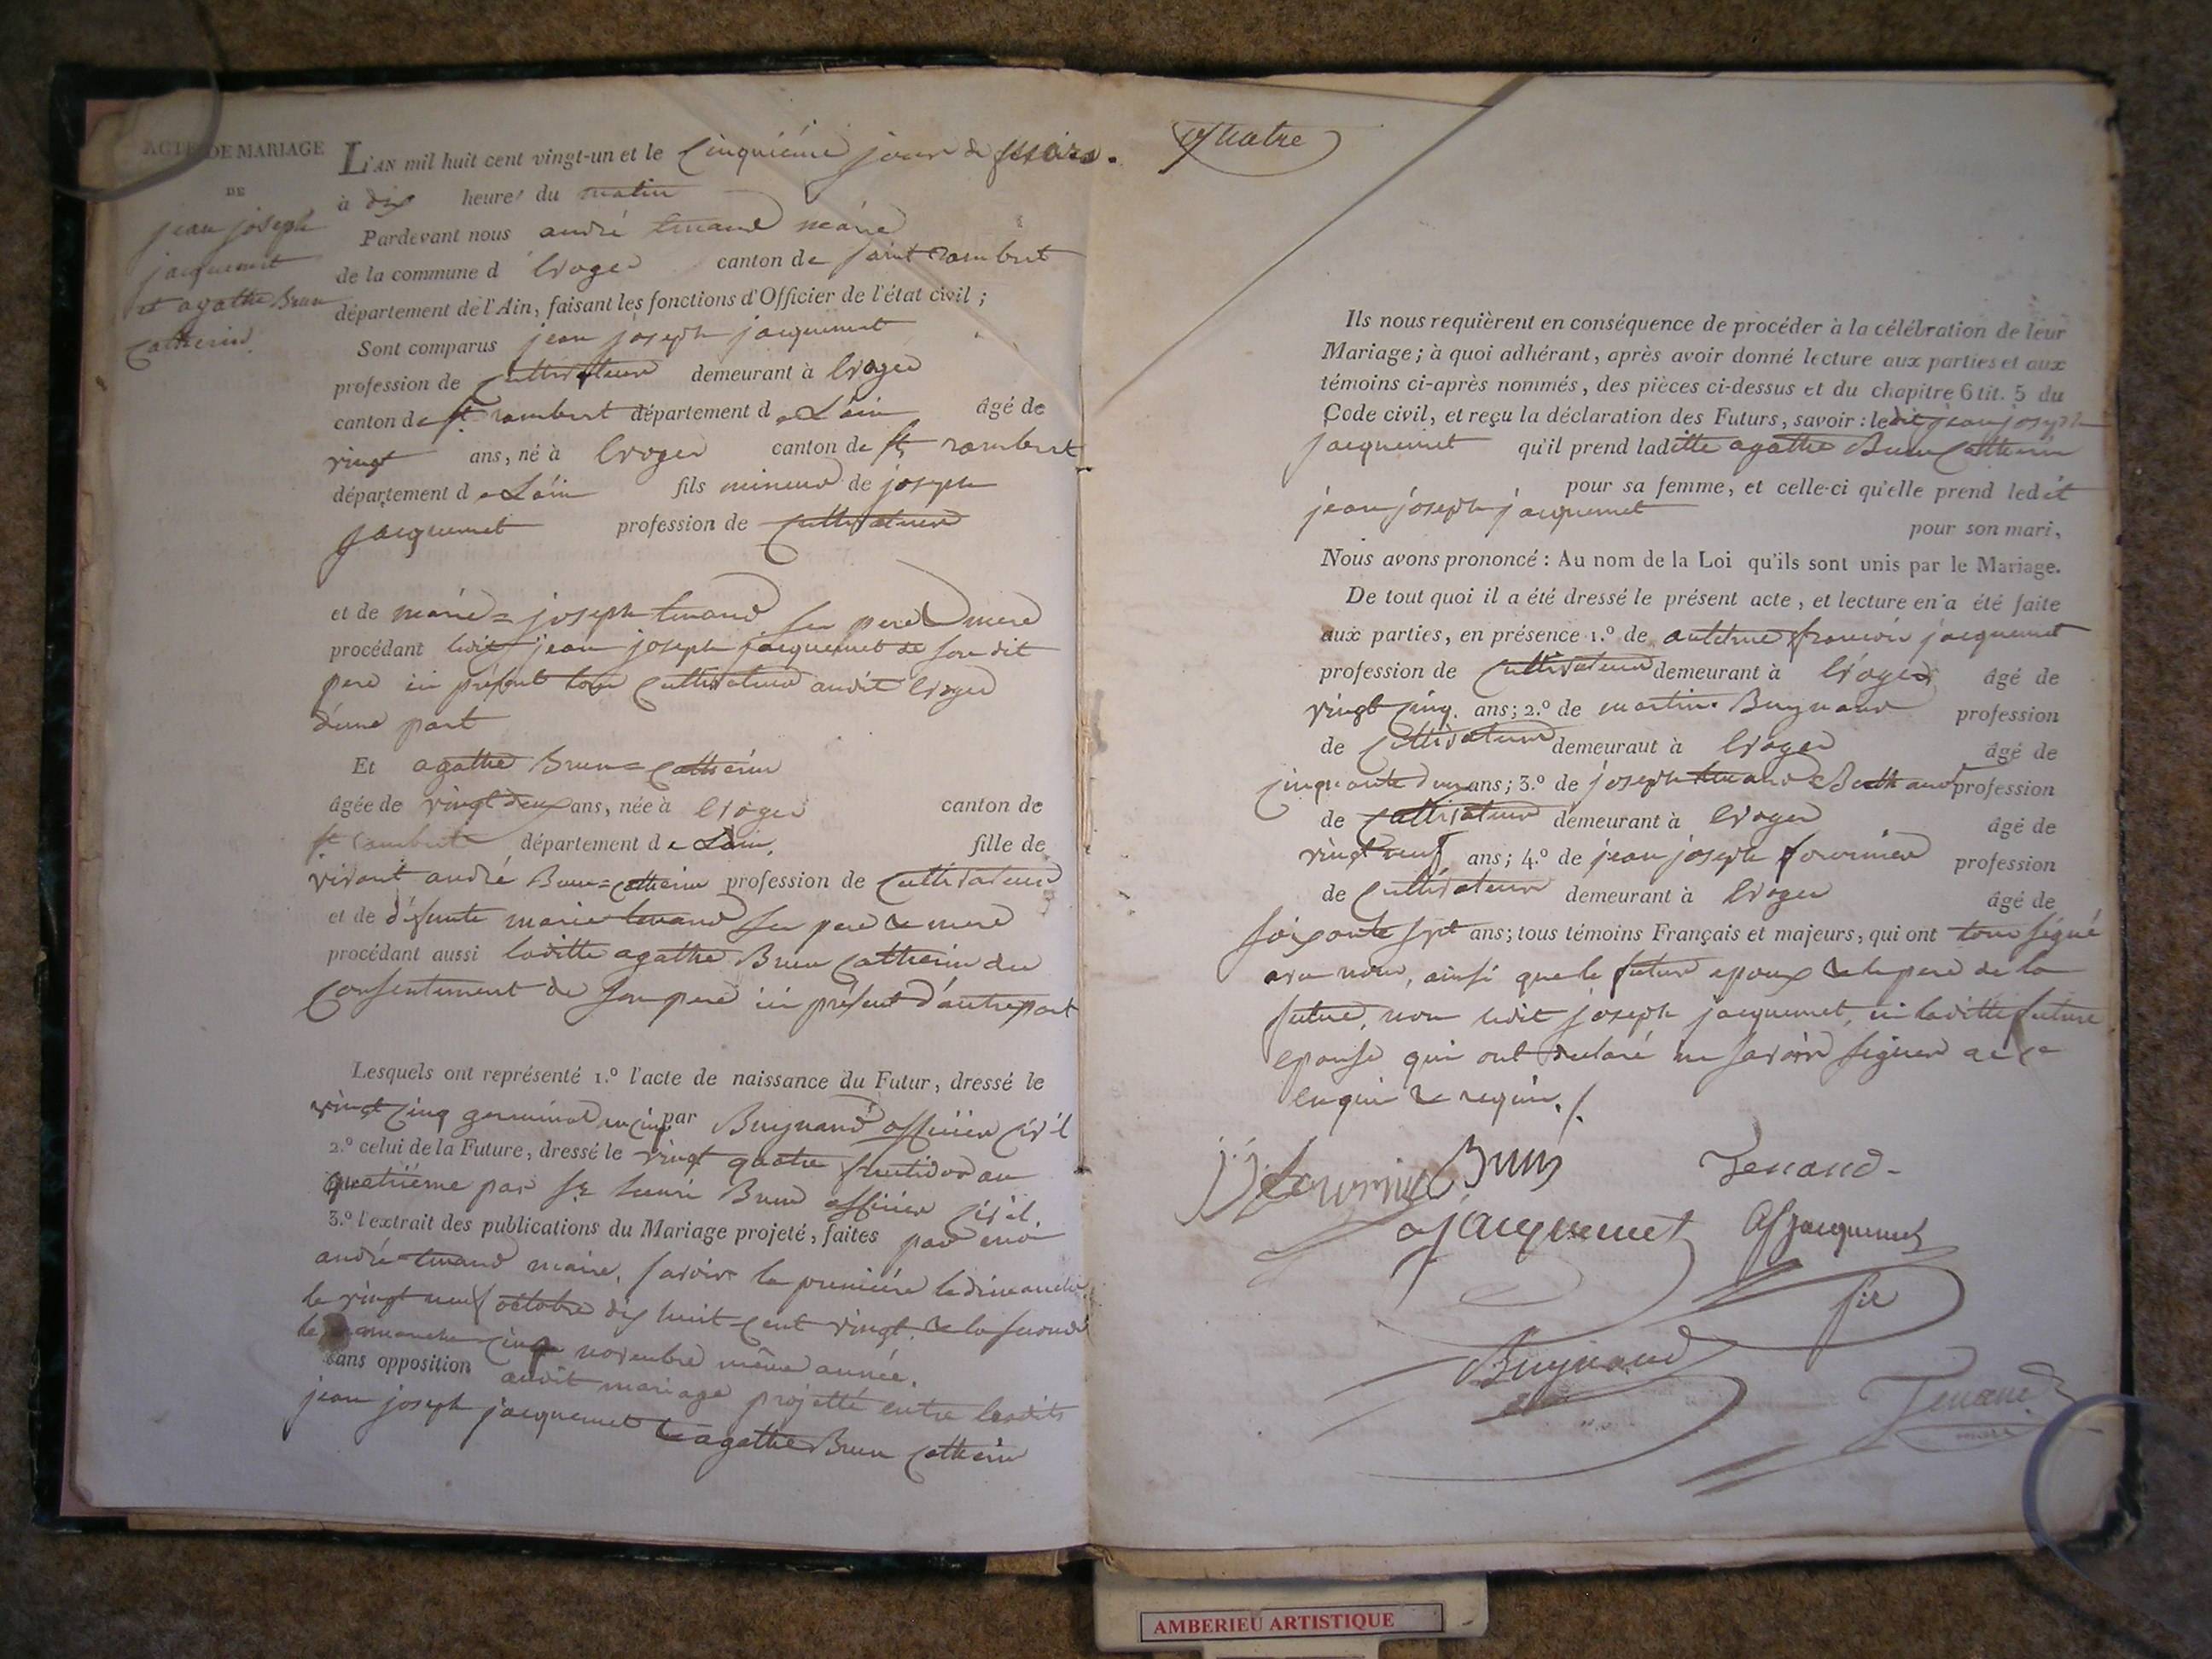 ACTE DE MARIAGE
DE
jean joseph
jacquemet
et agathe Brun
Catherin
L'AN mil huit cent vingt-un et le Cinquième jour de
à dix heure du matin
Pardevant nous andré tenand maire
de la commune d' Evoges canton de saint rambert
département de l'Ain, faisant les fonctions d'Officier de l'état civil ;
Sont comparus jean joseph jacquemet
profession de Cultivateur demeurant à Evoges
canton de st rambert département de L'ain âgé de
vingt ans, né à Evoges canton de st rambert
département de L'ain fils mineur de joseph
jacquemet profession de Cultivateur
et de marie=joseph tenand ses pere & mere
procédant ledit jean joseph jacquemet de son dit
pere ici présent tous Cultivateurs audit Evoges
d'une part
Et agathe Brun=Catherin
âgée de vingt deux ans, née à Evoges canton de
st rambert département de Lain, fille de
vivant andré Brun=Catherin profession de Cultivateur
et de défunte marie tenand ses pere & mere
procédant aussi laditte agathe Brun Catherin du
Consentement de son pere ici présent d'autre part
Lesquels ont représenté 1.º l'acte de naissance du Futur, dressé le
vingt cinq germinal par Buynand officier civil
2.º celui de la Future, dressé le vingt quatre fructidor an
quatrième par Brun officier civil.
3.º l'extrait des publications du Mariage projeté, faites par
andré tenand maire, savoir la première le dimanche
le vingt neuf octobre dix huit cent vingt & la seconde
le dimanche cinq novembre même année.
sans opposition audit mariage projetté entre lesdits
jean joseph jacquemet & agathe Brun Catherin
quatre
Ils nous requièrent en conséquence de procéder à la célébration de leur
Mariage ; à quoi adhérant, après avoir donné lecture aux parties et aux
témoins ci-après nommés, des pièces ci-dessus et du chapitre 6 tit. 5 du
Code civil, et reçu la déclaration des Futurs, savoir : ledit jean joseph
jacquemet qu'il prend laditte agathe Brun Catherin
pour sa femme, et celle-ci qu'elle prend ledit
jean joseph jacquemet
pour son mari,
Nous avons prononcé : Au nom de la Loi qu'ils sont unis par le Mariage.
De tout quoi il a été dressé le présent acte, et lecture en a été faite
aux parties, en présence 1.º de françois jacquemet
profession de Cultivateur demeurant à Evoges âgé de
vingt cinq ans ; 2.º de martin Buynand profession
de Cultivateur demeuraut à Evoges âgé de
cinquante deux ans ; 3.º de joseph tenand profession
de Cultivateur demeurant à Evoges âgé de
vingt neuf ans ; 4.º de jean joseph fournier profession
de Cultivateur demeurant à Evoges âgé de
soixante sept ans ; tous témoins Français et majeurs, qui ont tous signé
avec nous, ainsi que le futur epoux & le pere de la
future, non ledit joseph jacquemet, ni laditte future
epouse qui ont declaré ne savoir signer de ce
enquis & requis./.
JJ fournier Brun Tenand
jacquemet AFjacquemet
fils
Buynaud
Tenand
AMBERIEU ARTISTIQUE